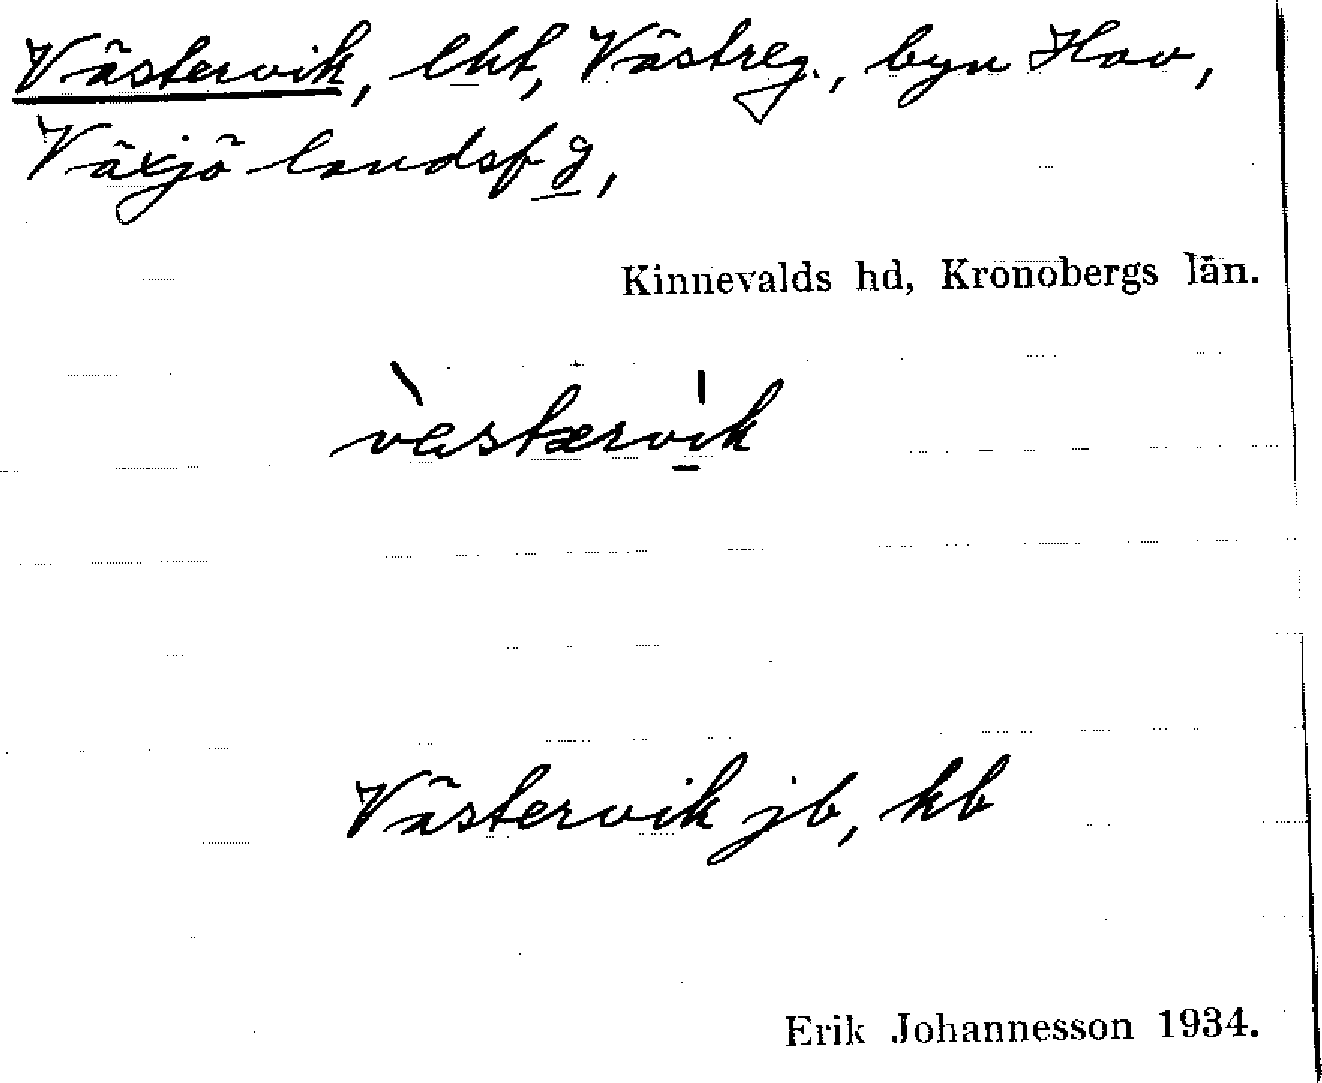 Västervik, lht, Västreg., byn Hov,
Växjö landsf g,
Kinnevalds hd, Kronobergs län.
vàstærvik
Västervik jb, kb
Erik Johannesson 1934.